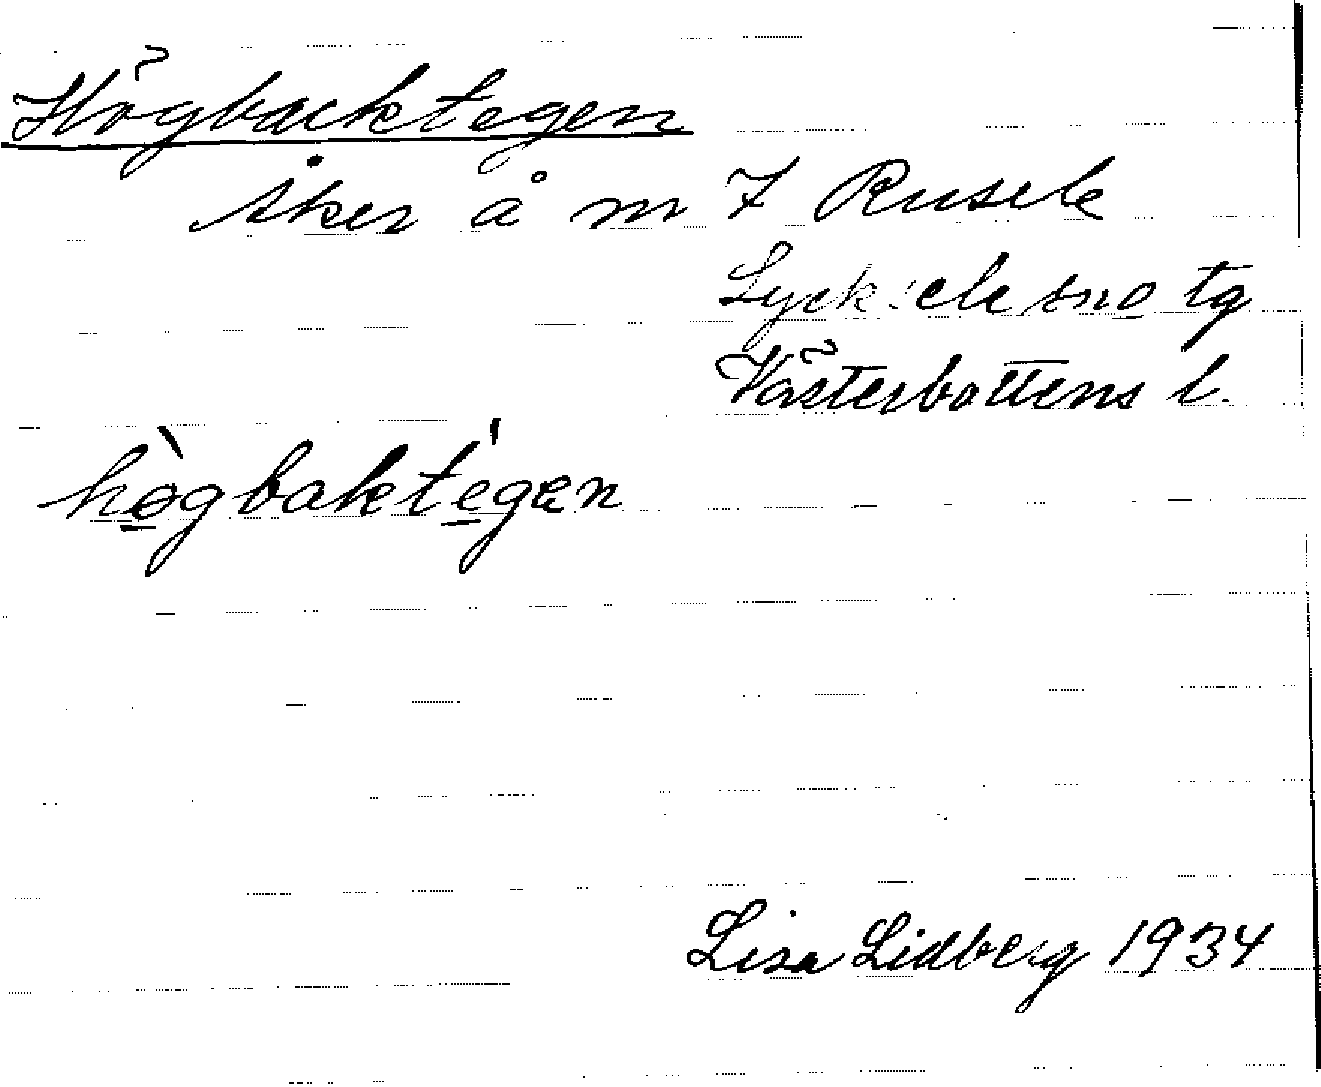 Högbacktegen
åker å nr 7 Rusele
Lycksele sno tg
Västerbottens l.
hògbaktégen
Lisa Lidberg 1934